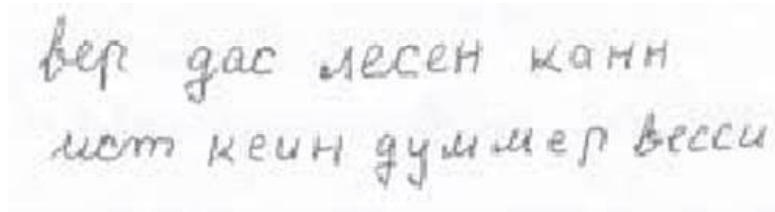 вер дас лесен канн
ист кеин думмер весси